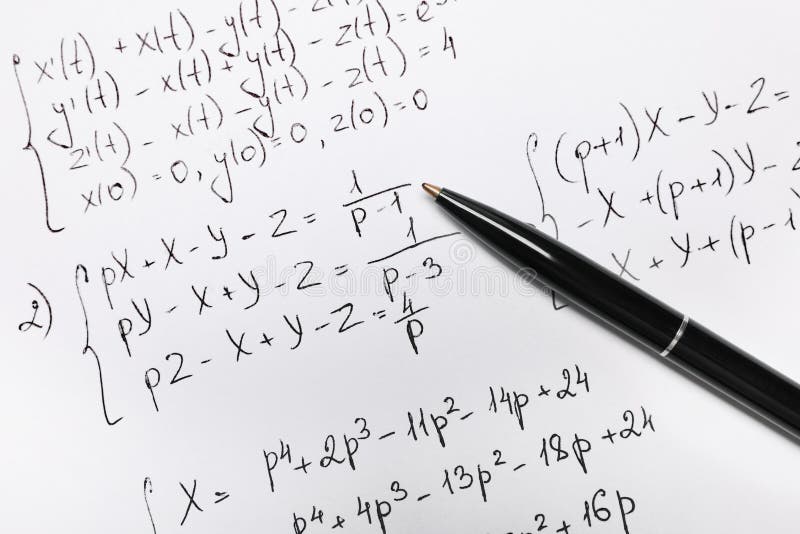 x'(t) + x(t) - y(t) - z(t) = e
y'(t) - x(t) + y(t) - z(t) =
z'(t) - x(t) - y(t) - z(t) = 4
x(0) = 0, y(0) = 0, z(0) = 0
2) pX + X - Y - Z = 1/(p-1)
pY - X + Y - Z = 1/(p-3)
pZ - X + Y - Z = 4/p
(p+1)X - Y - Z =
-X + (p+1)Y - Z
X + Y + (p-1)
X = p⁴ + 2p³ - 11p² - 14p + 24
p⁴ + 4p³ - 13p² - 18p + 24
p² + 16p
dreamstime